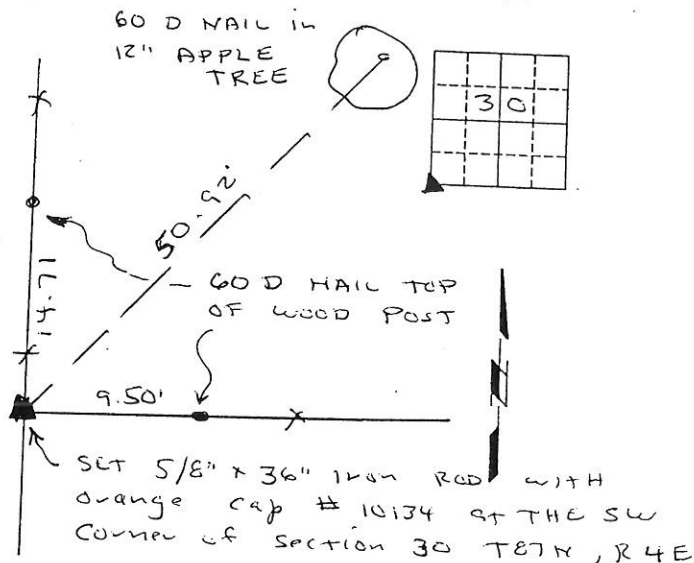 60 D NAIL in
12" APPLE
TREE
30
50.92'
14.71
60 D NAIL TOP
OF WOOD POST
9.50'
N
SET 5/8" x 36" Iron ROD WITH
Orange cap # 10134 at THE SW
Corner of Section 30 T87N, R4E